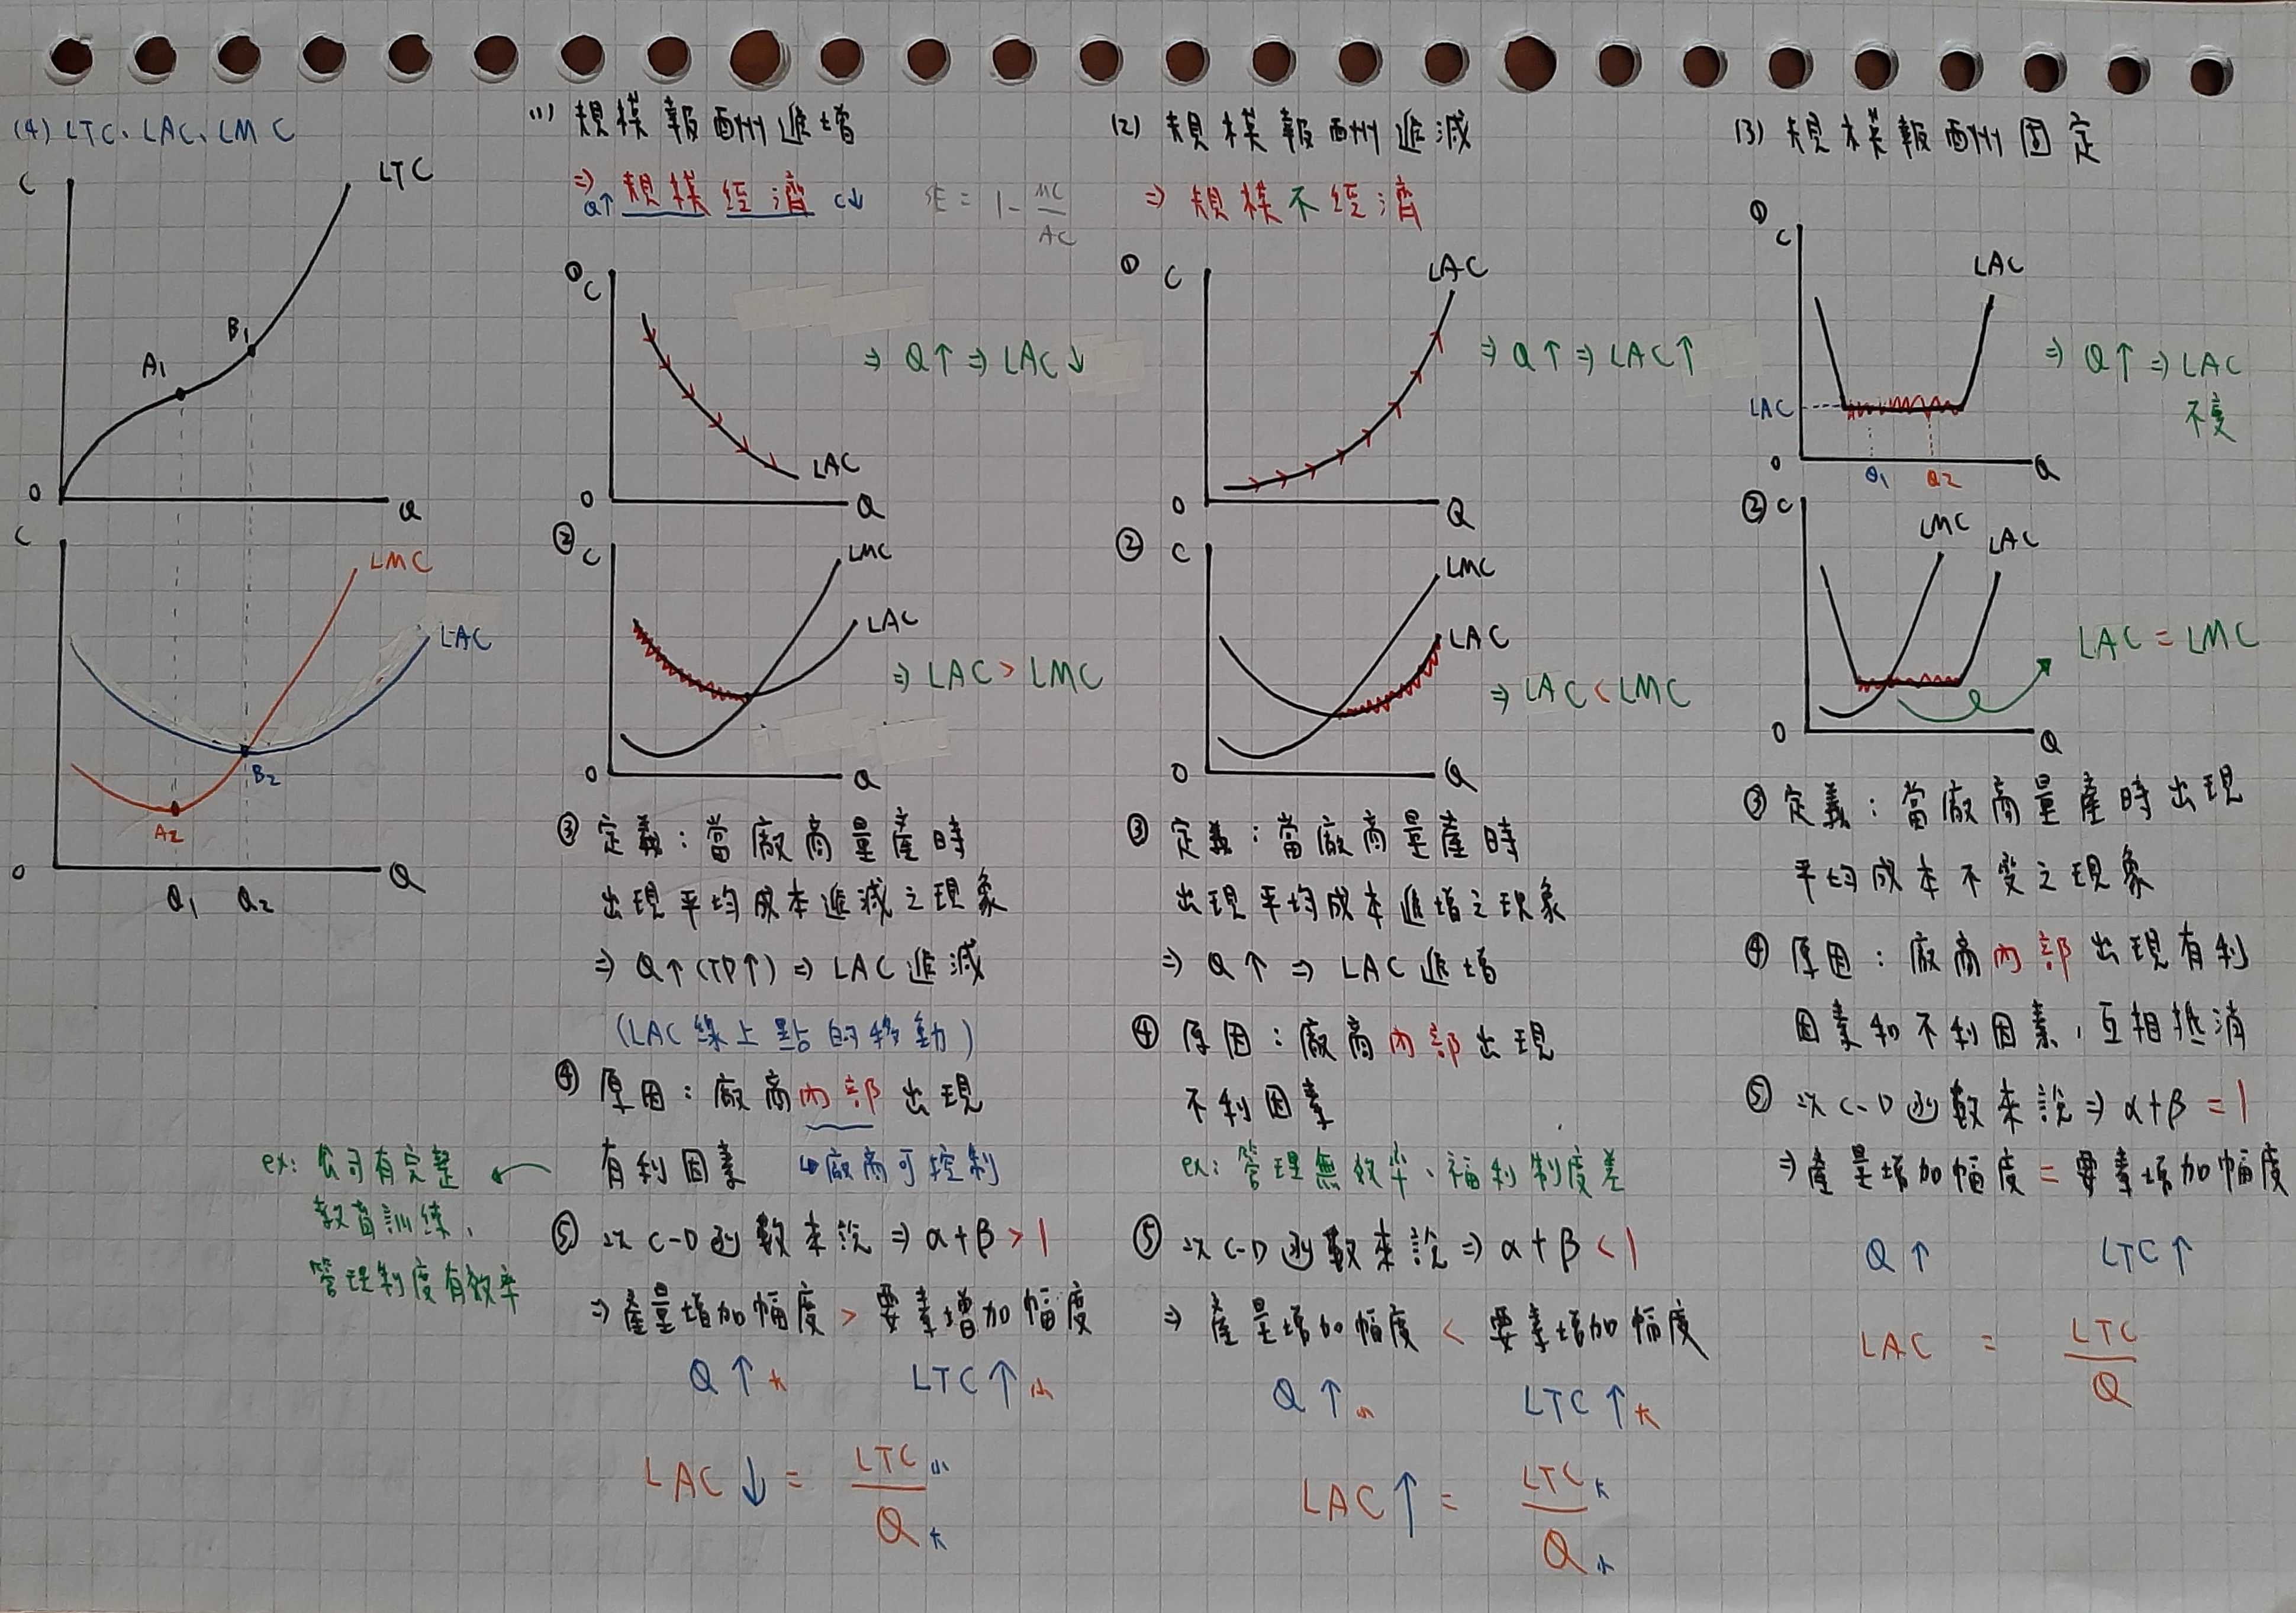 (4) LTC、LAC、LMC
C
LTC
B1
A1
0
Q
C
LMC
LAC
B2
A2
0
Q
Q1 Q2
(1) 規模報酬遞增
⇒ 規模經濟 C↓
Q↑
SE = 1 - MC/AC
① C
⇒ Q↑ ⇒ LAC↓
LAC
0 Q
② C
LMC
LAC
⇒ LAC > LMC
0 Q
③ 定義：當廠商量產時
出現平均成本遞減之現象
⇒ Q↑(TP↑) ⇒ LAC 遞減
(LAC 線上點的移動)
④ 原因：廠商內部出現
有利因素 ↳廠商可控制
ex: 公司有完整
教育訓練、
管理制度有效率
⑤ 以 C-D 函數來說 ⇒ α+β > 1
⇒ 產量增加幅度 > 要素增加幅度
Q↑大 LTC↑小
LAC↓ = LTC小/Q大
(2) 規模報酬遞減
⇒ 規模不經濟
① C
LAC
⇒ Q↑ ⇒ LAC↑
0 Q
② C
LMC
LAC
⇒ LAC < LMC
0 Q
③ 定義：當廠商量產時
出現平均成本遞增之現象
⇒ Q↑ ⇒ LAC 遞增
④ 原因：廠商內部出現
不利因素
ex: 管理無效率、福利制度差
⑤ 以 C-D 函數來說 ⇒ α+β < 1
⇒ 產量增加幅度 < 要素增加幅度
Q↑小 LTC↑大
LAC↑ = LTC大/Q小
(3) 規模報酬固定
① C
LAC
⇒ Q↑ ⇒ LAC
不變
LAC
0 Q1 Q2 Q
② C
LMC
LAC
LAC = LMC
0 Q
③ 定義：當廠商量產時出現
平均成本不變之現象
④ 原因：廠商內部出現有利
因素和不利因素，互相抵消
⑤ 以 C-D 函數來說 ⇒ α+β = 1
⇒ 產量增加幅度 = 要素增加幅度
Q↑ LTC↑
LAC = LTC/Q